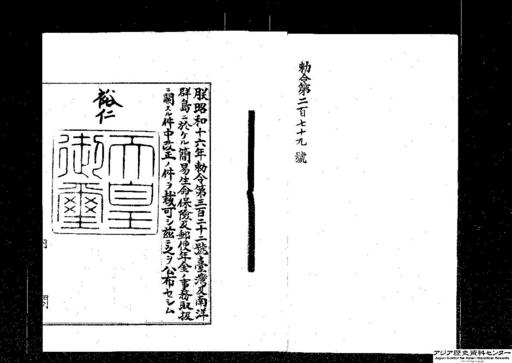 勅令第二百七十九號
朕昭和十六年勅令第三百二十二號臺灣及南洋
群島ニ於ケル簡易生命保險及郵便年金ノ事務取扱
ニ關スル件中改正ノ件ヲ裁可シ茲ニ之ヲ公布セシム
裕仁
天皇
御璽
アジア歴史資料センター
Japan Center for Asian Historical Records